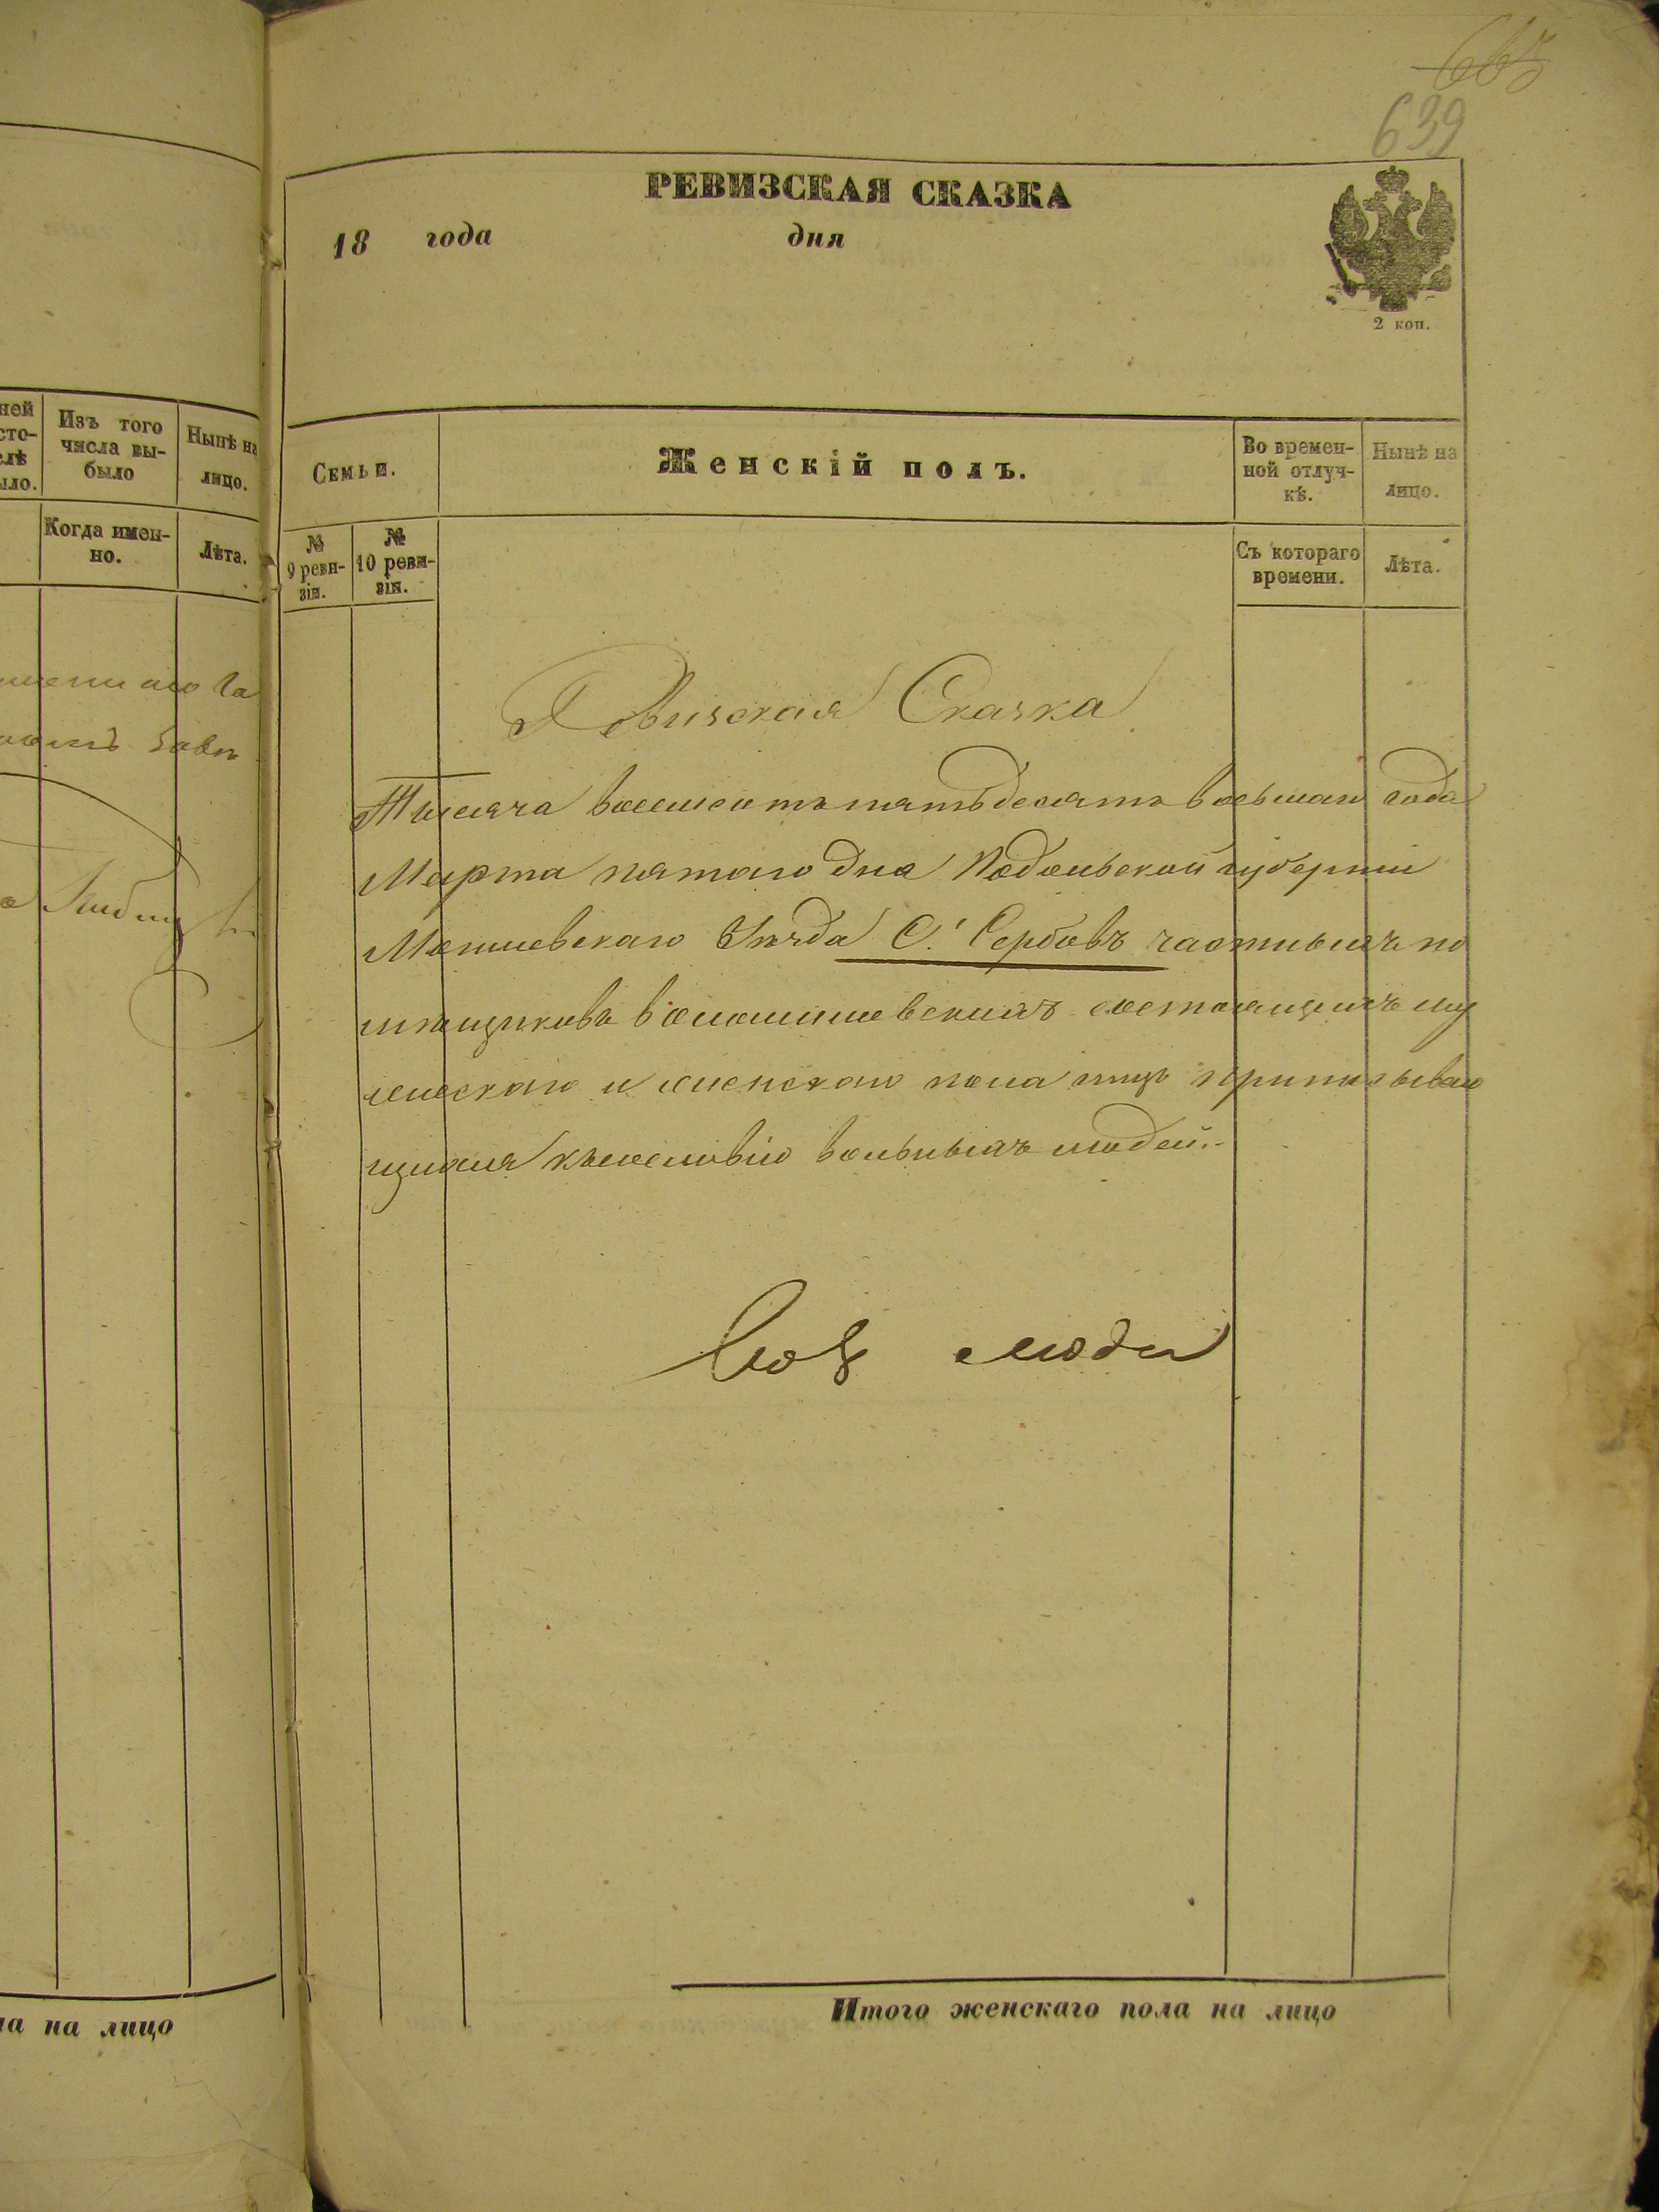 667
639
РЕВИЗСКАЯ СКАЗКА
18 года дня
2 коп.
ней
сто-
слѣ
ыло.
Изъ того
числа вы-
было
Нынѣ на
лицо.
Когда имен-
но.
Лѣта.
Семьи.
Женскій полъ.
Во времен-
ной отлуч-
кѣ.
Нынѣ на
лицо.
№
9 реви-
зіи.
№
10 реви-
зіи.
Съ котораго
времени.
Лѣта.
Ревизская Сказка
Тысяча восемсотъ пятьдесятъ восьмаго года
Марта пятаго дня Подольской губерніи
Могилевскаго Уѣзда С. Сербовъ частныхъ по
мѣщиковъ состоящихъ му
жескаго и женскаго пола лицъ приписываю
щихся къ сословію вольныхъ людей.-
люди
Итого женскаго пола на лицо
ла на лицо